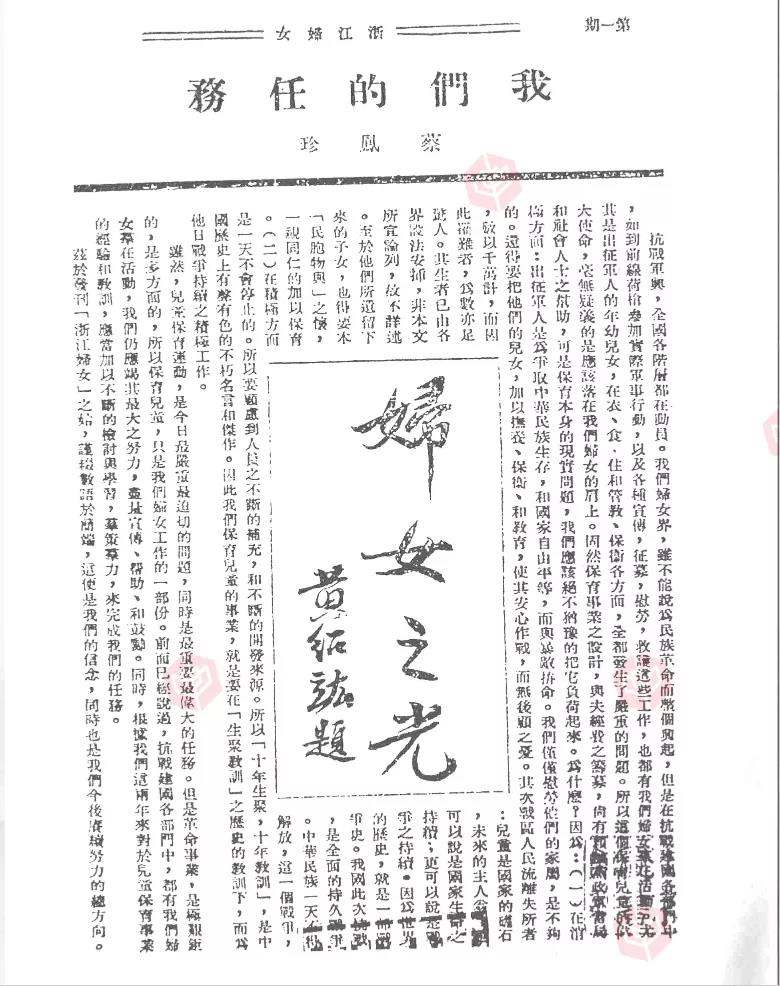 第一期
浙江婦女
我們的任務
蔡鳳珍
抗戰軍興，全國各階層都在動員。我們婦女界，雖不能說爲民族革命而整個興起，但是在抗戰建國各部門中
，如到前線荷槍參加實際軍事行動，以及各種宣傳，征募，慰勞，救護這些工作，也都有我們婦女羣在活動，尤
其是出征軍人的年幼兒女，在衣、食、住和管教、保衛各方面，全都發生了嚴重的問題。所以這個保育兒童的
大使命，毫無疑義的是應該落在我們婦女的肩上。固然保育事業之設計，與夫經費之籌募，尚有賴
和社會人士之幫助，可是保育本身的現實問題，我們應該絕不猶豫的把它負荷起來。爲什麼？因爲：（一）在消
極方面：出征軍人是爲爭取中華民族生存，和國家自由平等，而與暴敵拚命。我們僅僅慰勞他們的家屬，是不夠
的。還得要把他們的兒女，加以撫養、保衛、和教育，使其安心作戰，而無後顧之憂。其次戰區人民流離失所者
，數以千萬計，而因
此罹難者，爲數亦足
驚人。其生者已由各
界設法安插，非本文
所宜論列，故不詳述
。至於他們所遺留下
來的子女，也得要本
「民胞物與」之懷，
一視同仁的加以保育
。（二）在積極方面
：兒童是國家的礎石
，未來的主人翁
可以說是國家生命之
持續；更可以說是戰
爭之持續。因爲世界
的歷史，就是一部戰
爭史。我國此次抗戰
，是全面的持久戰爭
。中華民族一天不得
解放，這一個戰爭，
婦女之光
黃紹竑題
是一天不會停止的。所以要顧慮到人民之不斷的補充，和不斷的開發來源。所以「十年生聚，十年教訓」，是中
國歷史上有聲有色的不朽名言和傑作。因此我們保育兒童的事業，就是要在「生聚教訓」之歷史的教訓下，而爲
他日戰爭持續之積極工作。
雖然，兒童保育運動，是今日最嚴重最迫切的問題，同時是最重要最偉大的任務。但是革命事業，是極艱鉅
的，是多方面的，所以保育兒童，只是我們婦女工作的一部份。前面已經說過，抗戰建國各部門中，都有我們婦
女羣在活動，我們仍應竭其最大之努力，盡量宣傳、幫助、和鼓勵。同時，根據我們這兩年來對於兒童保育事業
的經驗和教訓，應當加以不斷的檢討與學習，羣策羣力，來完成我們的任務。
茲於發刊「浙江婦女」之始，謹綴數語於簡端，這便是我們的信念，同時也是我們今後賡續努力的總方向。